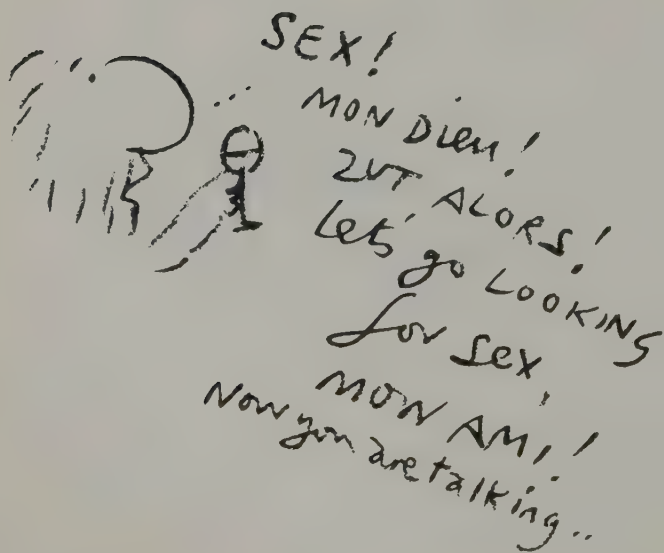 SEX!
MON DIEU!
ZUT ALORS!
Let's go LOOKING
for sex,
MON AMI!
Now you are talking..